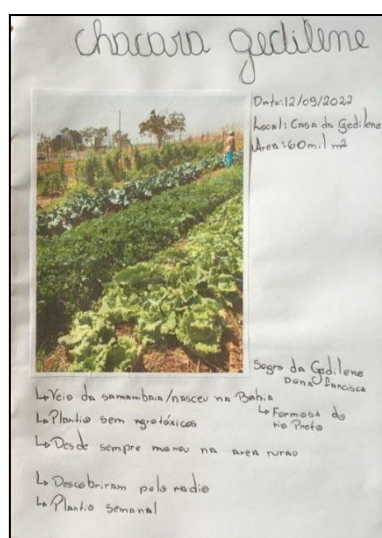 chacara gedilene
Data:12/09/2022
Local: Casa da Gedilene
Area:60mil m2
Sogra da Gedilene
Dona francisca
↳Veio da samambaia/nasceu na Bahia
↳Formosa do rio Preto
↳Plantio sem agrotóxicos
↳Desde sempre morou na area rural
↳Descobriram pelo radio
↳Plantio semanal